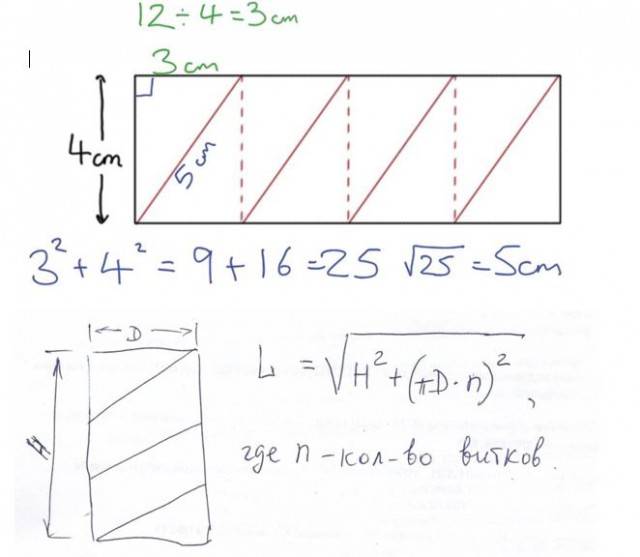 12 ÷ 4 = 3 cm
3 cm
4 cm
5 cm
3² + 4² = 9 + 16 = 25 √25 = 5 cm
D
H
L = √H² + (πD·n)²,
где n - кол-во витков.